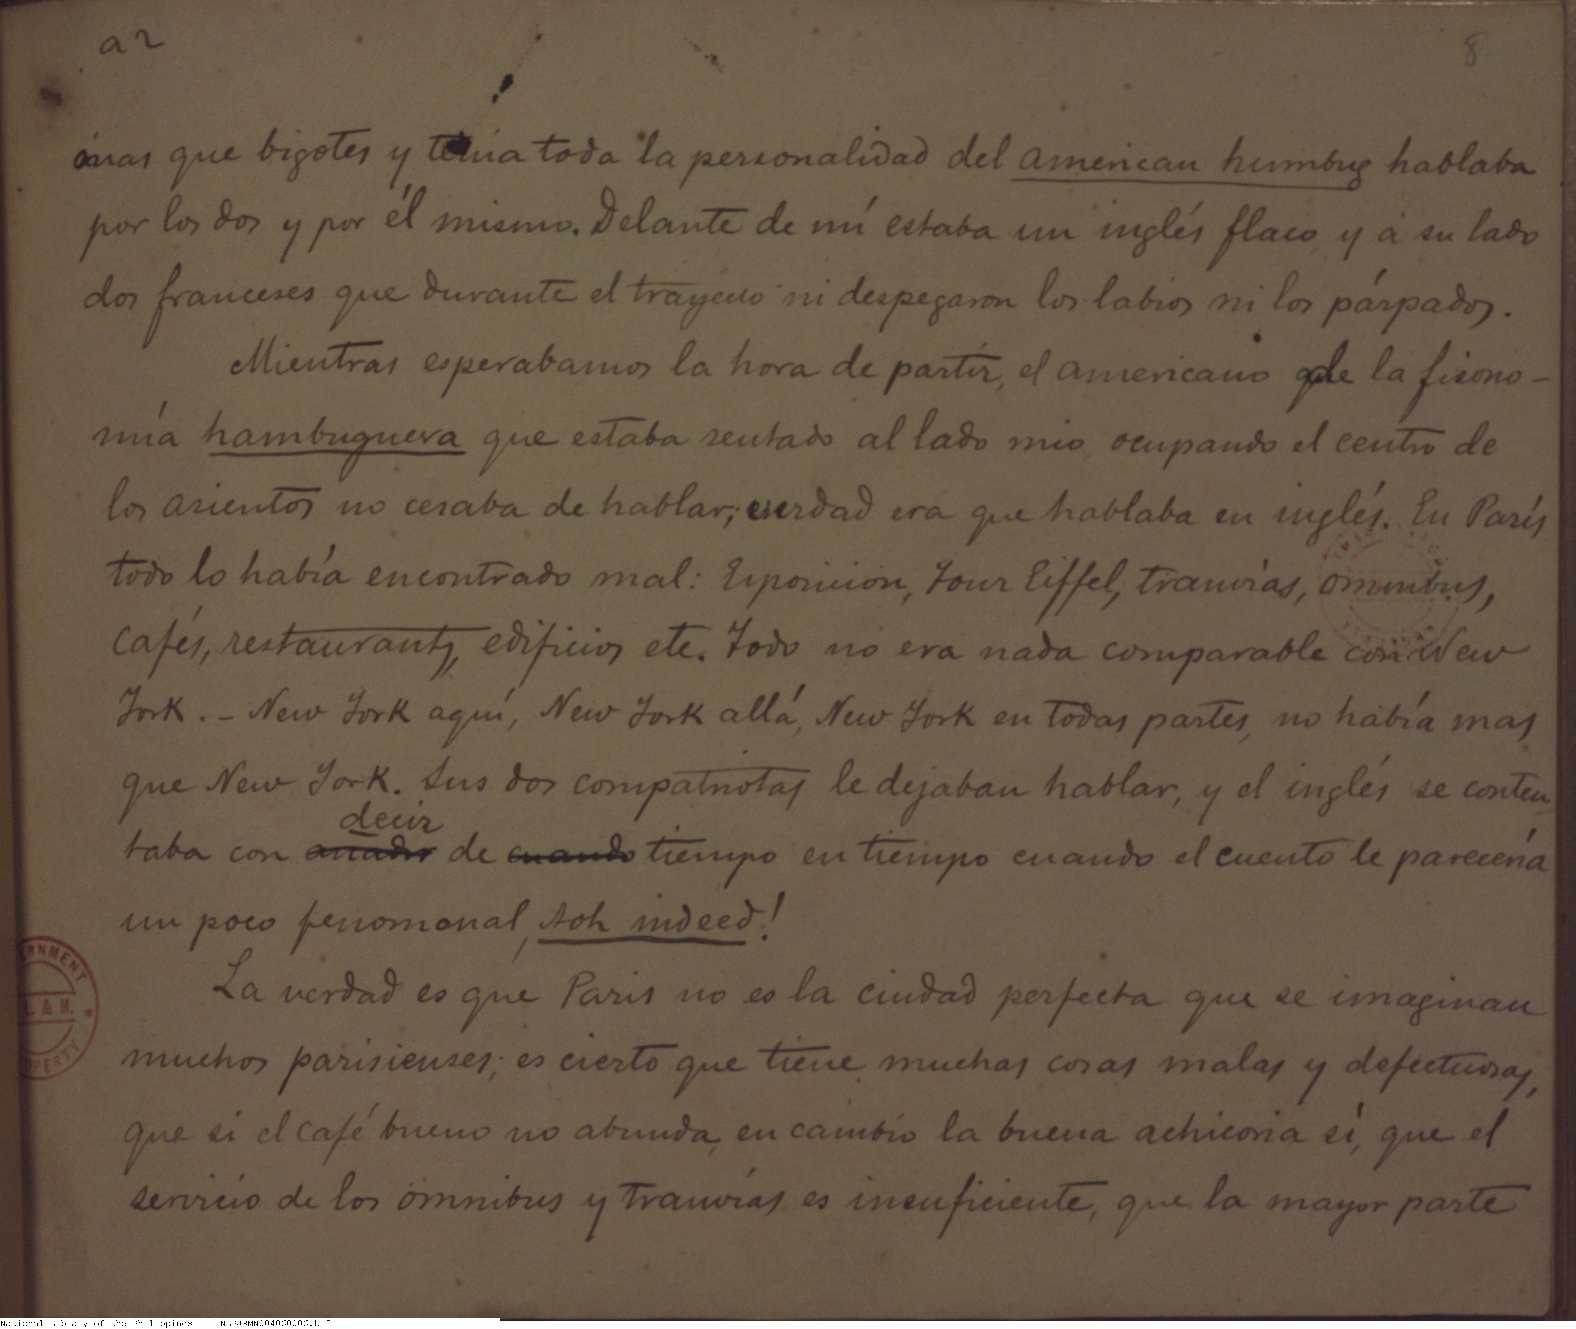 a 2
8
mas que bigotes y tenía toda la personalidad del american humbug hablaba
por los dos y por él mismo. Delante de mí estaba un inglés flaco y á su lado
dos franceses que durante el trayecto ni despegaron los labios ni los párpados.
Mientras esperabamos la hora de partir, el americano de la fisono-
mía hambuguera que estaba sentado al lado mio ocupando el centro de
los asientos no cesaba de hablar; verdad era que hablaba en inglés. En París
todo lo había encontrado mal: Exposicion, Tour Eiffel, tranvías, omnibus,
cafés, restaurants, edificios etc. Todo no era nada comparable con New
York. - New York aquí, New York allá, New York en todas partes, no había mas
que New York. Sus dos compatriotas le dejaban hablar, y el inglés se conten
decir
taba con añadir de cuando tiempo en tiempo cuando el cuento le parecería
un poco fenomonal, Aoh indeed!
La verdad es que Paris no es la ciudad perfecta que se imaginan
muchos parisienses; es cierto que tiene muchas cosas malas y defectuosas,
que si el café bueno no abunda, en cambio la buena achicoria sí, que el
servicio de los omnibus y tranvías es insuficiente, que la mayor parte
National Library of the Philippines